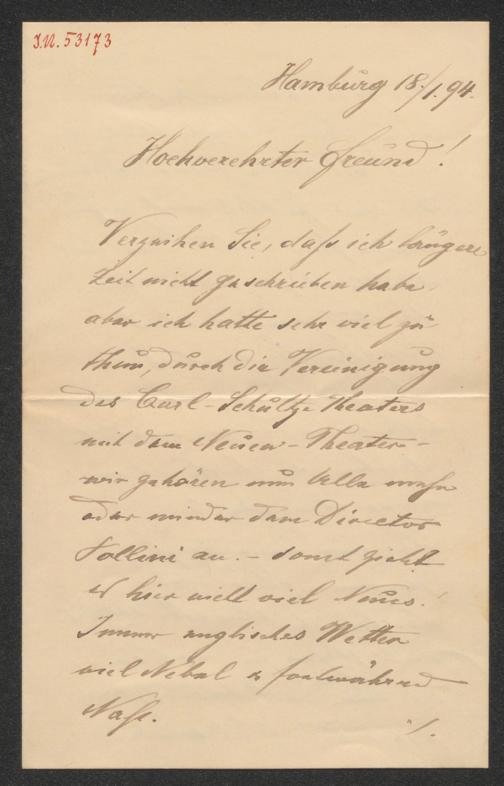 I.N. 53173
Hamburg 18./1. 94.
Hochverehrter Freund!
Verzeihen Sie, daß ich längere
Zeit nicht geschrieben habe,
aber ich hatte sehr viel zu
thun, durch die Vereinigung
des Carl-Schultze Theaters
mit dem Neuen-Theater-
wir gehören nun Alle mehr
oder minder dem Director
Pollini an. - sonst giebt
es hier nicht viel Neues.
Immer englisches Wetter
viel Nebel & fortwährend
Naß.
./.